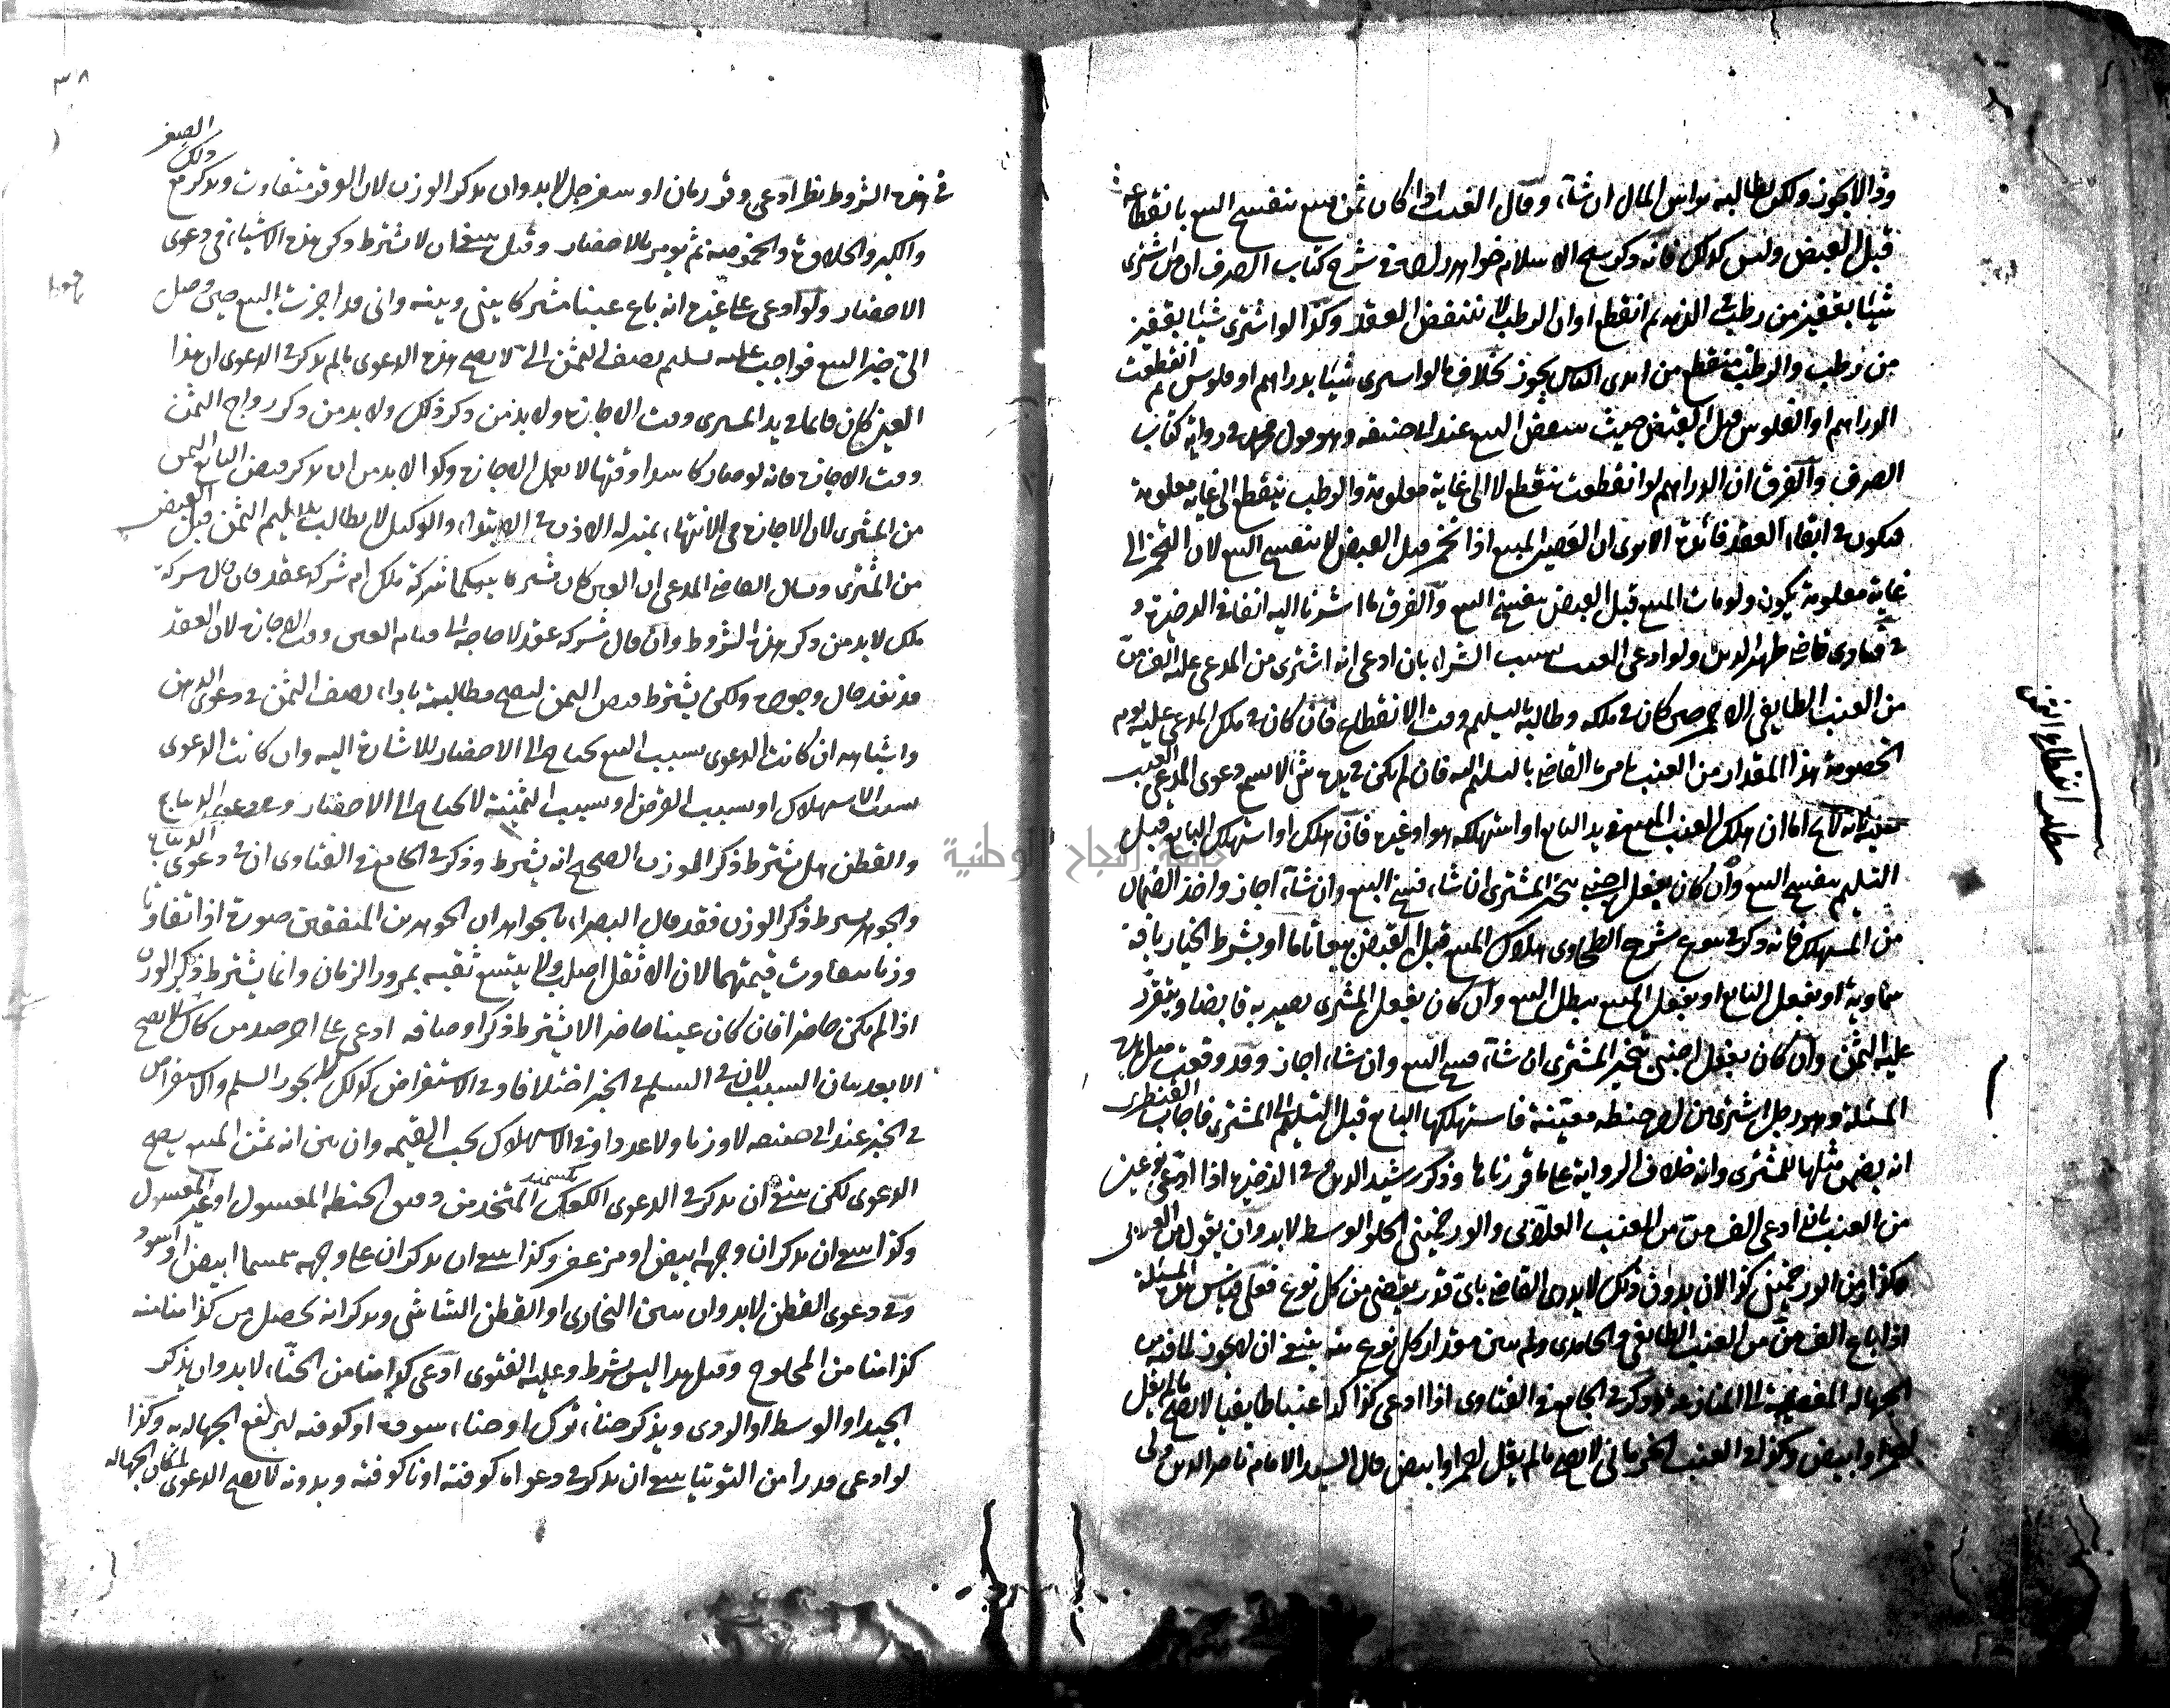 وقال لا يجوز ولكن يطالبه برأس المال ان شآء وقال العنب اذا كان ثمن مبيع ينفسخ البيع بانقطاعه
قبل القبض وليس كذلك فانه ذكر شيخ الاسلام خواهرزاده في شرح كتاب الصرف ان من اشترى
شيئا بقفيز من رطب في الذمة ثم انقطع اوان الرطب لا ينتقض العقد وكذا لو اشترى شيئا بقفيز
من رطب والرطب منقطع من ايدى الناس يجوز بخلاف ما لو اشترى شيئا بدراهم او فلوس ثم انقطعت
الدراهم او الفلوس قبل القبض حيث ينتقض البيع عند ابى حنيفه وهو قول محمد في رواية كتاب
الصرف والفرق ان الدراهم لو انقطعت تنقطع لا الى غاية معلومة والرطب ينقطع الى غاية معلومة
فيكون في ابقاء العقد فائدة الا يرى ان العصير المبيع اذا تخمر قبل القبض لا ينفسخ البيع لان التخمر الى
غاية معلومة يكون ولو مات المبيع قبل القبض ينفسخ البيع والفرق ما اشرنا اليه انفا في الذخيرة و
في فتاوى قاضى ظهير الدين ولو ادعى العنب بسبب الشراء بان ادعى انه اشترى من المدعى عليه الف من
من العنب الطايفي الاحمر حين كان في ملكه وطالبه بالتسليم وقت الانقطاع فان كان في ملك المدعى عليه يوم
الخصومة هذا المقدار من العنب يامره القاضى بالتسليم اليه فان لم يكن في يده شئ لا يسمع دعوى المدعى العنب
اما ان هلك العنب المبيع في يد البايع او استهلكه هو او غيره فان هلك او استهلك البايع قبل
التسليم ينفسخ البيع وان كان بفعل اجنبى يتخير المشترى ان شاء فسخ البيع وان شآء اجاز واخذ الضمان
من المستهلك فانه ذكر في بيوع شرح الطحاوى هلاك المبيع قبل القبض بيعا تاما او بشرط الخيار بافة
سماوية او بفعل البايع او بفعل المبيع يبطل البيع وان كان بفعل المشترى يصير به قابضا ويتقرر
عليه الثمن وان كان بفعل اجنبى يتخير المشترى ان شآء فسخ البيع وان شاء اجاز وقد وقعت مثل هذه
المسئلة وهو رجل اشترى من اخر حنطه معينة فاستهلكها البايع قبل التسليم الى المشترى فاجاب
انه يضمن مثلها للمشترى وانه خلاف الرواية على ما قررناها وذكر رشيد الدين في الذخيرة اذا ادعى نوعين
من العنب بان ادعى الف من من العنب العلائى والورخمينى الحلو الوسط لا بد وان يقول من العلائى
كذا ومن الورخمينى كذا لان بدون ذلك لا يدرى القاضى باى قدر يقضى من كل نوع فعلى قياس هذه المسئلة
اذا باع الف من من العنب الطايفى والحامدى ولم يبين مقدار كل نوع منه ينبغى ان لا يجوز لما فيه من
الجهالة المفضية الى المنازعة وذكر في الجامع في الفتاوى اذا ادعى كذا كذا عنبا طايفيا لا يصح ما لم يقل
احمر او ابيض وكذا في العنب لا يصح ما لم يقل احمر او ابيض قال السيد الامام ناصر الدين
مطلب انقطاع الثمن
٣٨
في هذه الشروط نظر ادعى وقر رمان او سفرجل لا بد وان يذكر الوزن لان الوقر متفاوت ويذكر مع ذلك الصغر
والكبر والحلاوة والحموضة ثم يؤمر بالاحضار وقيل ينبغي ان لا يشترط ذكر هذه الاشياء في دعوى
الاحضار ولو ادعى على غيره انه باع عينا مشتركا بينى وبينه وانى قد اجزت البيع حين وصل
الى خبر البيع فواجب عليه تسليم نصف الثمن الى لا يصح هذه الدعوى ما لم يذكر في الدعوى ان هذا
العين كان قائما في يد المشترى وقت الاجازة ولا بد من ذكر ذلك ولا بد من ذكر رواج الثمن
وقت الاجازة فانه لو صار كاسدا وقتها لا يعمل الاجازة وكذا لا بد من ان يذكر قبض البايع الثمن
من المشترى لان الاجازة في الانتهاء بمنزلة الاذن في الابتداء والوكيل لا يطالب بتسليم الثمن قبل القبض
من المشترى ويسال القاضى المدعى ان العين كان مشتركا بينكما شركة ملك ام شركة عقد فان قال شركة
ملك لا بد من ذكر هذه الشروط وان قال شركة عقد لا حاجة الى قيام العين وقت الاجازة لان العقد
قد نفذ حال وجوده ولكن يشترط قبض الثمن ليصح مطالبته باداء نصف الثمن في دعوى الدهن
واشباهه ان كانت الدعوى بسبب البيع يحتاج الى الاحضار للاشارة اليه وان كانت الدعوى
بسبب الاستهلاك او بسبب القرض او بسبب الثمنية لا يحتاج الى الاحضار وفي دعوى الديباج
والقطن هل يشترط ذكر الوزن الصحيح انه يشترط وذكر في الجامع في الفتاوى ان في دعوى الديباج
والجوهر يشترط ذكر الوزن فقد قال البصراء بالجواهر ان الجوهرين المتفقين صورة اذا تفاوتا
وزنا يتفاوت قيمتهما لان الاثقل اصلب ولا يتسع ثقبه بمرور الزمان وانما يشترط ذكر الوزن
اذا لم يكن حاضرا فان كان عينا حاضرا لا يشترط ذكر اوصافه ادعى على اخر لا يصح
الا بعد بيان السبب لان في السلم في الخبز اختلافا وفي الاستقراض كذلك يجوز السلم والاستقراض
في الخبز عند ابى حنيفه لا وزنا ولا عددا وفي الاستهلاك يجب القيمه وان بين انه ثمن المبيع يصح
الدعوى لكن ينبغي ان يذكر في الدعوى الكعك المتخذ من دقيق الحنطه المغسول او غير المغسول
وكذا ينبغي ان يذكر ان وجهه ابيض او مزعفر وكذا ينبغي ان يذكر ان على وجهه سمسما ابيض او اسود
وفي دعوى القطن لا بد وان يبين البخارى او القطن الشاشى ويذكر انه يحصل من كذا منا منه
كذا منا من المحلوج وقيل هذا ليس بشرط وعليه الفتوى ادعى كذا منا من الحناء لا بد وان يذكر
الجيد او الوسط او الردى ويذكر حناء او حناء سوده او كوفته ليرتفع الجهالة به وكذا
لو ادعى قدرا من التوتيا ينبغي ان يذكر في دعواه كوفته او ناكوفته وبدونه لا يصح الدعوى لمكان الجهاله
جامعة النجاح الوطنية